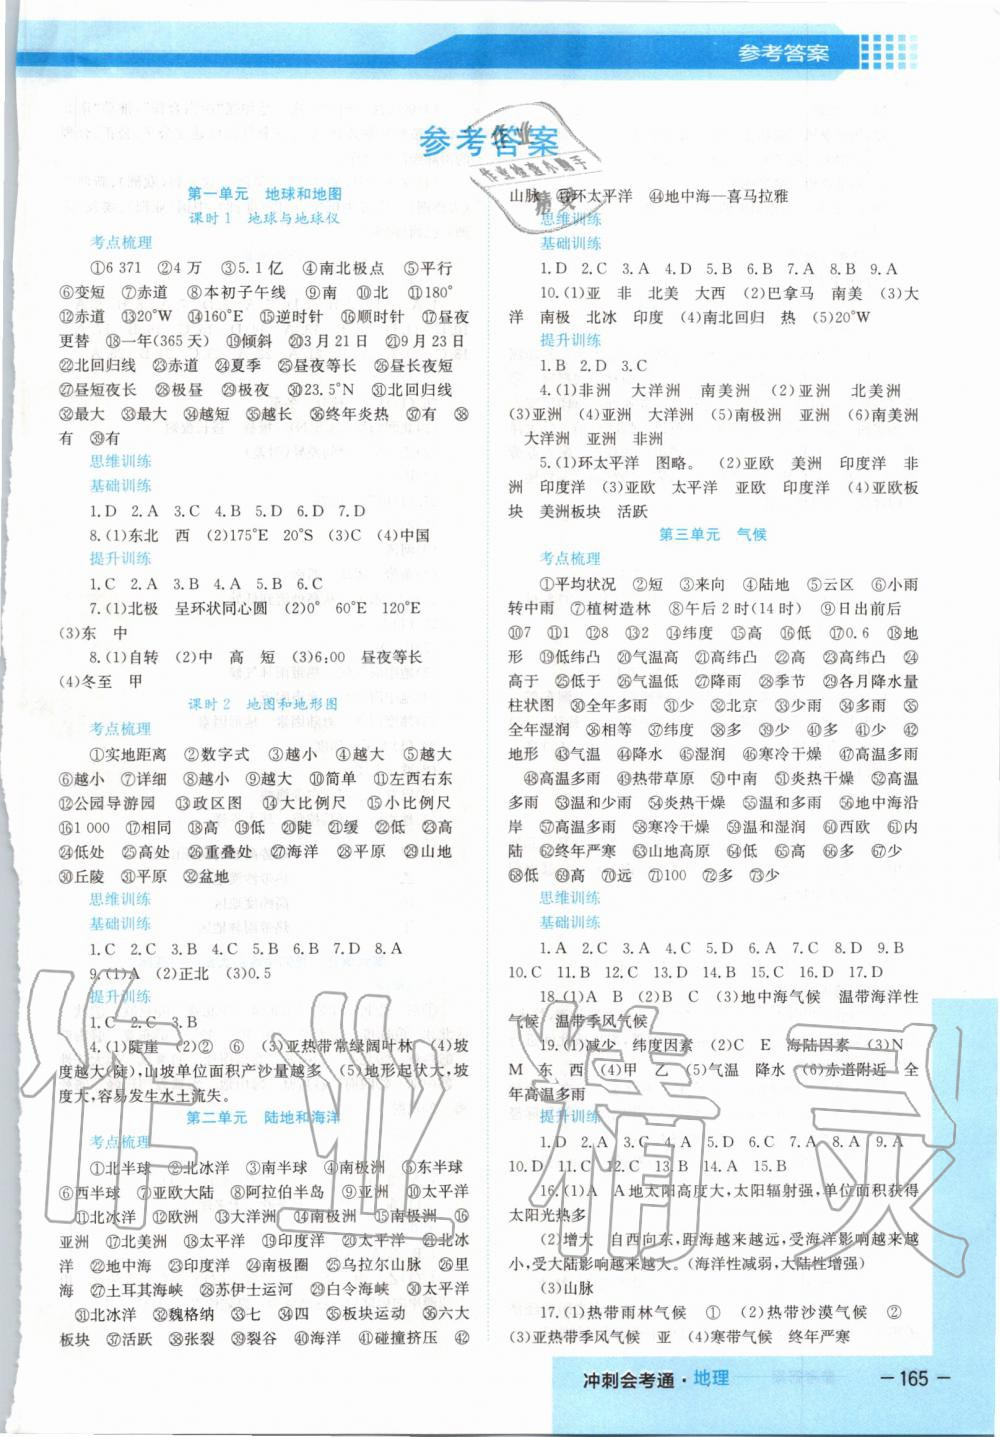 参考答案
参考答案
第一单元 地球和地图
课时1 地球与地球仪
考点梳理
①6 371 ②4万 ③5.1亿 ④南北极点 ⑤平行
⑥变短 ⑦赤道 ⑧本初子午线 ⑨南 ⑩北 ⑪180°
⑫赤道 ⑬20°W ⑭160°E ⑮逆时针 ⑯顺时针 ⑰昼夜
更替 ⑱一年(365天) ⑲倾斜 ⑳3月21日 ㉑9月23日
㉒北回归线 ㉓南回归线 ㉔夏季 ㉕昼夜等长 ㉖昼长夜短
㉗昼短夜长 ㉘极昼 ㉙极夜 ㉚23.5°N ㉛北回归线
㉜最大 ㉝最大 ㉞越短 ㉟越长 ㊱终年炎热 ㊲有 ㊳
有 ㊴有
思维训练
基础训练
1.D 2.A 3.C 4.B 5.D 6.D 7.D
8.(1)东北 西 (2)175°E 20°S (3)C (4)中国
提升训练
1.C 2.A 3.B 4.A 5.B 6.B
7.(1)北极 呈环状同心圆 (2)0° 60°E 120°E
(3)东 中
8.(1)自转 (2)中 高 短 (3)6:00 昼夜等长
(4)冬至 甲
课时2 地图和地形图
考点梳理
①实地距离 ②数字式 ③越小 ④越大 ⑤越大
⑥越小 ⑦详细 ⑧越小 ⑨越大 ⑩简单 ⑪左西右东
⑫公园导游园 ⑬政区图 ⑭大比例尺 ⑮小比例尺
⑯1 000 ⑰相同 ⑱高 ⑲低 ⑳陡 ㉑缓 ㉒低 ㉓高
㉔低处 ㉕高处 ㉖重叠处 ㉗海洋 ㉘平原 ㉙山地
㉚丘陵 ㉛平原 ㉜盆地
思维训练
基础训练
1.C 2.C 3.B 4.C 5.B 6.D 7.B 8.A
9.(1)A (2)正北 (3)0.5
提升训练
1.C 2.C 3.B
4.(1)陡崖 (2)② ⑥ (3)亚热带常绿阔叶林 (4)坡
度越大(陡),山坡单位面积产沙量越多 (5)地形起伏大,坡
度大,容易发生水土流失。
第二单元 陆地和海洋
考点梳理
①北半球 ②北冰洋 ③南半球 ④南极洲 ⑤东半球
⑥西半球 ⑦亚欧大陆 ⑧阿拉伯半岛 ⑨亚洲 ⑩太平洋
⑪北冰洋 ⑫欧洲 ⑬大洋洲 ⑭大西洋 ⑮南极洲 ⑯
亚洲 ⑰北美洲 ⑱太平洋 ⑲印度洋 ⑳太平洋 ㉑非洲
㉒地中海 ㉓印度洋 ㉔南极圈 ㉕乌拉尔山脉 ㉖里
海 ㉗土耳其海峡 ㉘苏伊士运河 ㉙白令海峡 ㉚太平洋
㉛北冰洋 ㉜魏格纳 ㉝七 ㉞四 ㉟板块运动 ㊱六大
板块 ㊲活跃 ㊳张裂 ㊴裂谷 ㊵海洋 ㊶碰撞挤压 ㊷
山脉 ㊸环太平洋 ㊹地中海—喜马拉雅
思维训练
基础训练
1.D 2.C 3.A 4.D 5.B 6.B 7.A 8.B 9.A
10.(1)亚 非 北美 大西 (2)巴拿马 南美 (3)大
洋 南极 北冰 印度 (4)南北回归 热 (5)20°W
提升训练
1.B 2.D 3.C
4.(1)非洲 大洋洲 南美洲 (2)亚洲 北美洲
(3)亚洲 (4)亚洲 大洋洲 (5)南极洲 亚洲 (6)南美洲
大洋洲 亚洲 非洲
5.(1)环太平洋 图略。 (2)亚欧 美洲 印度洋 非
洲 印度洋 (3)亚欧 太平洋 亚欧 印度洋 (4)亚欧板
块 美洲板块 活跃
第三单元 气候
考点梳理
①平均状况 ②短 ③来向 ④陆地 ⑤云区 ⑥小雨
转中雨 ⑦植树造林 ⑧午后2时(14时) ⑨日出前后
⑩7 ⑪1 ⑫8 ⑬2 ⑭纬度 ⑮高 ⑯低 ⑰0.6 ⑱地
形 ⑲低纬凸 ⑳气温高 ㉑高纬凸 ㉒气温低 ㉓高 ㉔
高于 ㉕低于 ㉖大陆 ㉗降雨 ㉘季节 ㉙各月降水量
柱状图 ㉚全年多雨 ㉛少 ㉜北京 ㉝少雨 ㉞多雨 ㉟
全年湿润 ㊱相等 ㊲纬度 ㊳多 ㊴少 ㊵多 ㊶少 ㊷
地形 ㊸气温 ㊹降水 ㊺湿润 ㊻寒冷干燥 ㊼高温多雨
㊽高温多雨 ㊾热带草原 ㊿中南 51炎热干燥 52高温
多雨 53温和少雨 54炎热干燥 55温和多雨 56地中海沿
岸 57高温多雨 58寒冷干燥 59温和湿润 60西欧 61内
陆 62终年严寒 63山地高原 64低 65高 66多 67少
68低 69高 70远 71100 72多 73少
思维训练
基础训练
1.A 2.D 3.B 4.C 5.C 6.C 7.B 8.D 9.B
10.C 11.B 12.D 13.B 14.C 15.C 16.D 17.D
18.(1)A B (2)B C (3)地中海气候 温带海洋性
气候 温带季风气候
19.(1)减少 纬度因素 (2)C E 海陆因素 (3)N
M 东 西 (4)甲 乙 (5)气温 降水 (6)赤道附近 全
年高温多雨
提升训练
1.D 2.B 3.C 4.D 5.C 6.B 7.B 8.A 9.A
10.D 11.C 12.C 13.B 14.A 15.B
16.(1)A A地太阳高度大,太阳辐射强,单位面积获得
太阳光热多
(2)增大 自西向东,距海越来越远,受海洋影响越来越
小,受大陆影响越来越大。(海洋性减弱,大陆性增强)
(3)山脉
17.(1)热带雨林气候 ① (2)热带沙漠气候 ②
(3)亚热带季风气候 亚 (4)寒带气候 终年严寒
冲刺会考通·地理
—165—
作业
作业检查小助手
精灵
作业精灵